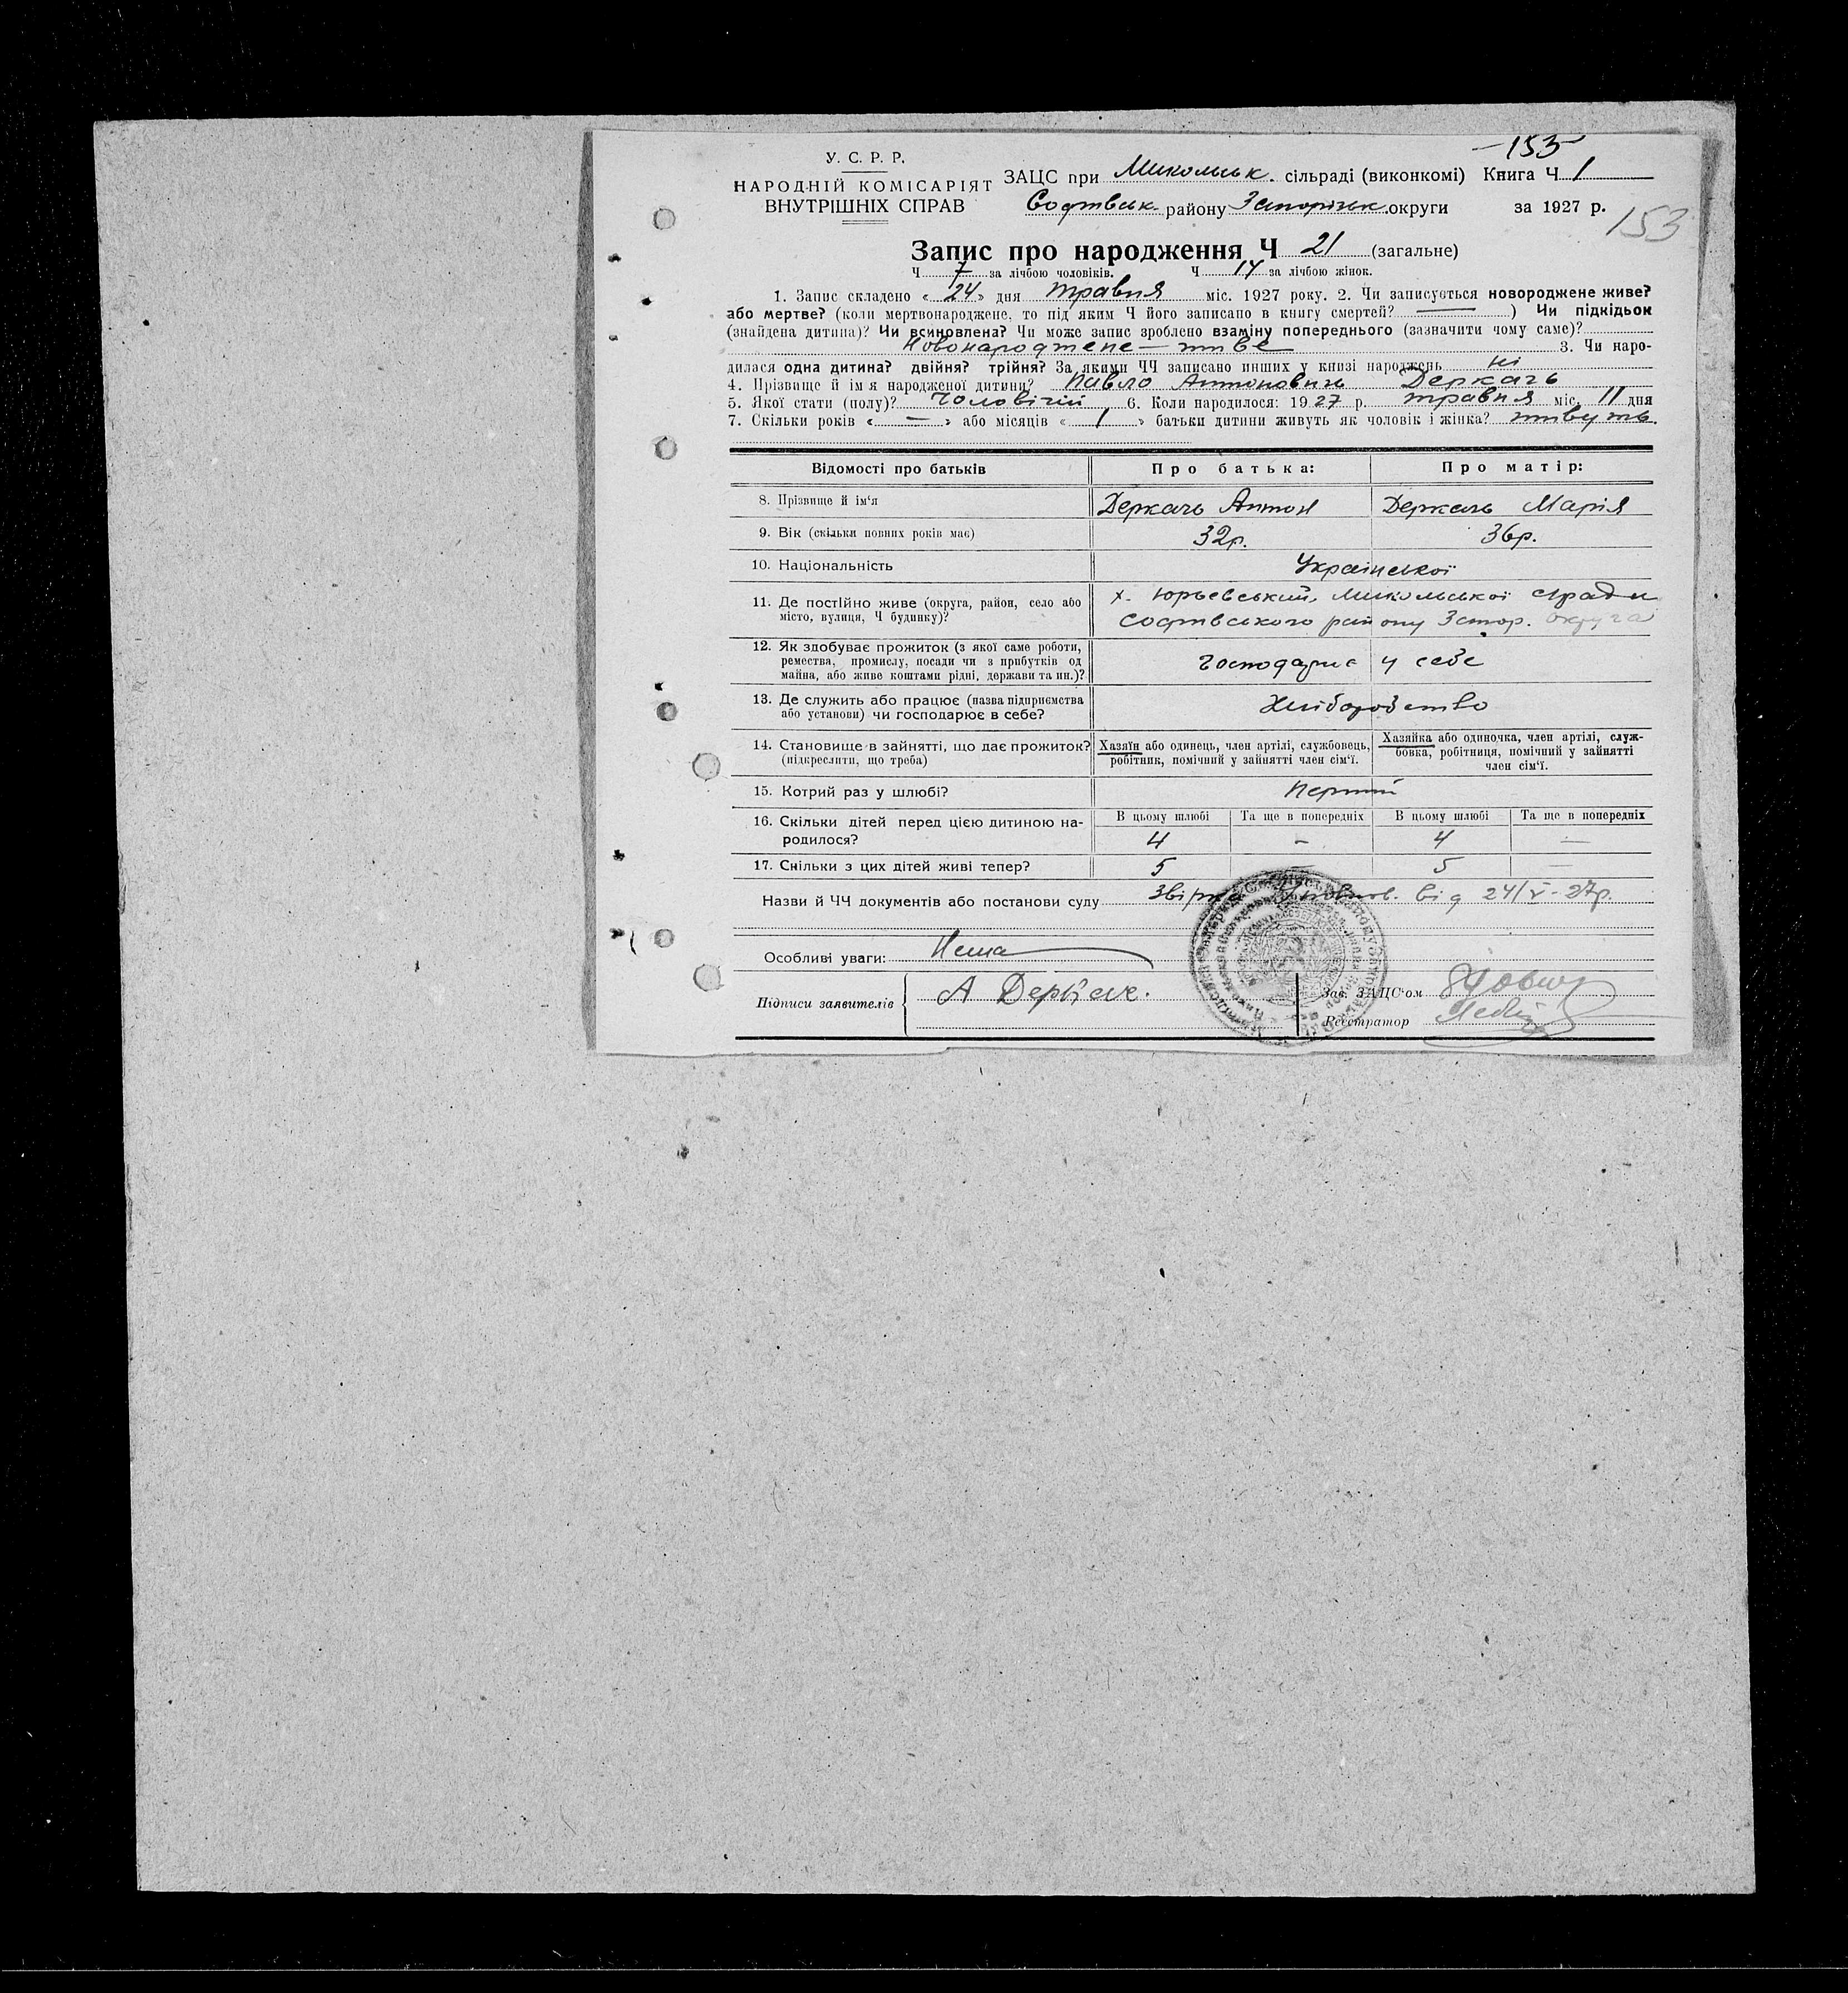 -153-
У. С. Р. Р.
НАРОДНІЙ КОМІСАРІЯТ
ВНУТРІШНІХ СПРАВ
ЗАЦС при Микольськ. сільраді (виконкомі) Книга Ч. 1
Софіївськ. району Запорізьк. округи за 1927 р.
153
Запис про народження Ч 21 (загальне)
Ч. 7 за лічбою чоловіків. Ч. 14 за лічбою жінок.
1. Запис складено «24» дня травня міс. 1927 року. 2. Чи записується новороджене живе?
або мертве? (коли мертвонароджене, то під яким Ч його записано в книгу смертей? —) Чи підкідьок
(знайдена дитина)? Чи всиновлена? Чи може запис зроблено взаміну попереднього (зазначити чому саме)?
Новонароджене — живе 3. Чи наро-
дилася одна дитина? двійня? трійня? За якими ЧЧ записано инших у книзі народжень ні
4. Прізвище й ім'я народженої дитини? Павло Антонович Деркачь
5. Якої стати (полу)? Чоловічій 6. Коли народилося: 1927 р. травня міс. 11 дня
7. Скільки років «—» або місяців «1» батьки дитини живуть як чоловік і жінка? живуть.
Відомості про батьків Про батька: Про матір:
8. Прізвище й ім'я Деркачь Антон Деркачь Марія
9. Вік (скільки повних років має) 32р. 36р.
10. Національність Української
11. Де постійно живе (округа, район, село або
місто, вулиця, Ч будинку)?
х. Юрьевський, Микольської с/ради
Софіївського району Запор. округа
12. Як здобуває прожиток (з якої саме роботи,
ремества, промислу, посади чи з прибутків од
майна, або живе коштами рідні, держави та ин.)?
господарює у себе
13. Де служить або працює (назва підприємства
або установи) чи господарює в себе?
Хліборобство
14. Становище в зайнятті, що дає прожиток?
(підкреслити, що треба)
Хазяїн або одинець, член артілі, службовець,
робітник, помічний у зайнятті член сім'ї.
Хазяйка або одиночка, член артілі, служ-
бовка, робітниця, помічний у зайнятті
член сім'ї.
15. Котрий раз у шлюбі? Перший
16. Скільки дітей перед цією дитиною на-
родилося?
В цьому шлюбі Та ще в попередніх В цьому шлюбі Та ще в попередніх
4 – 4 —
17. Скільки з цих дітей живі тепер? 5 — 5 —
Назви й ЧЧ документів або постанови суду від 24/V-27р.
Особливі уваги: Нема
Підписи заявителів А Деркач.
Зав. ЗАЦС'ом
Реєстратор